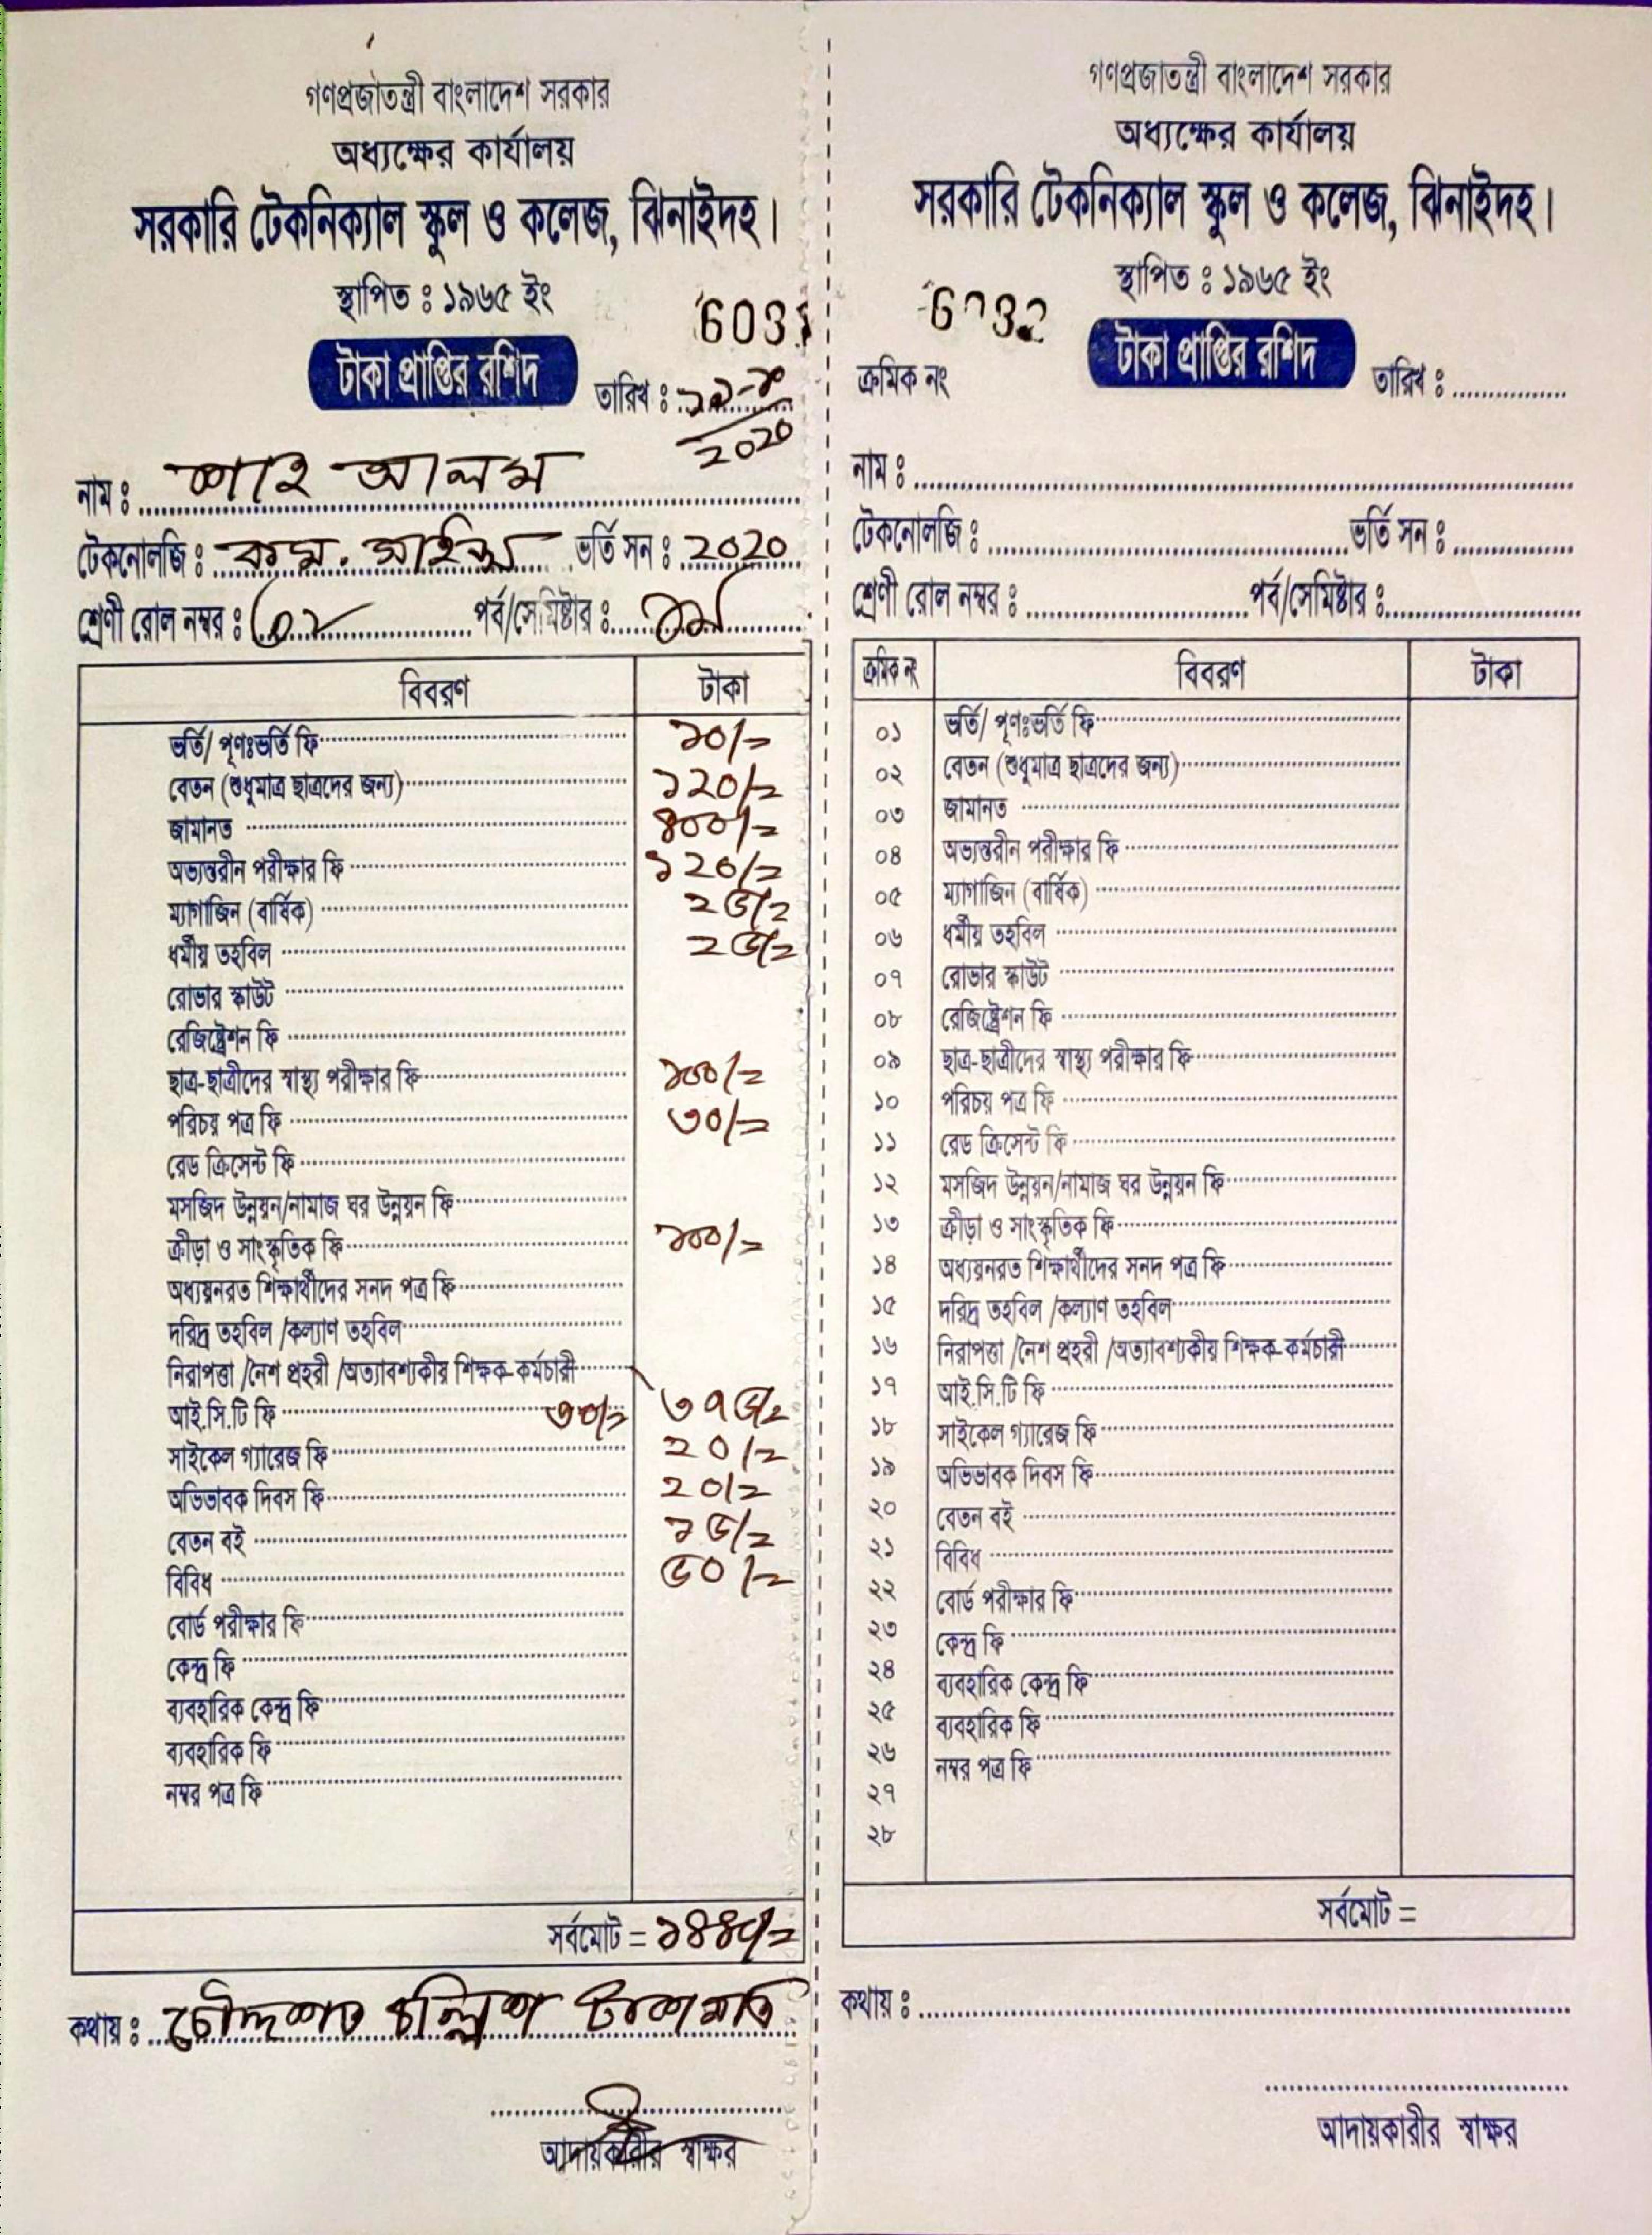 গণপ্রজাতন্ত্রী বাংলাদেশ সরকার
অধ্যক্ষের কার্যালয়
সরকারি টেকনিক্যাল স্কুল ও কলেজ, ঝিনাইদহ।
স্থাপিত ঃ ১৯৬৫ ইং
টাকা প্রাপ্তির রশিদ
তারিখ ঃ
২০২০
নাম ঃ শাহ আলম
টেকনোলজি ঃ কম. সাইন্স ভর্তি সন ঃ ২০২০
শ্রেণী রোল নম্বর ঃ পর্ব/সেমিষ্টার ঃ ১ম
বিবরণ টাকা
ভর্তি/ পূণঃভর্তি ফি ১০/=
বেতন (শুধুমাত্র ছাত্রদের জন্য) ১২০/=
জামানত ৪০০/=
অভ্যন্তরীন পরীক্ষার ফি ১২০/=
ম্যাগাজিন (বার্ষিক) ২৫/=
ধর্মীয় তহবিল ২৫/=
রোভার স্কাউট
রেজিষ্ট্রেশন ফি
ছাত্র-ছাত্রীদের স্বাস্থ্য পরীক্ষার ফি ১০০/=
পরিচয় পত্র ফি ৩০/=
রেড ক্রিসেন্ট ফি
মসজিদ উন্নয়ন/নামাজ ঘর উন্নয়ন ফি
ক্রীড়া ও সাংস্কৃতিক ফি ১০০/=
অধ্যয়নরত শিক্ষার্থীদের সনদ পত্র ফি
দরিদ্র তহবিল /কল্যাণ তহবিল
নিরাপত্তা /নৈশ প্রহরী /অত্যাবশ্যকীয় শিক্ষক-কর্মচারী
আই.সি.টি ফি ৩৭৫/=
সাইকেল গ্যারেজ ফি ২০/=
অভিভাবক দিবস ফি ২০/=
বেতন বই ১৫/=
বিবিধ ৫০/=
বোর্ড পরীক্ষার ফি
কেন্দ্র ফি
ব্যবহারিক কেন্দ্র ফি
ব্যবহারিক ফি
নম্বর পত্র ফি
সর্বমোট =
কথায় ঃ চৌদ্দশত চল্লিশ টাকা মাত্র
আদায়কারীর স্বাক্ষর
গণপ্রজাতন্ত্রী বাংলাদেশ সরকার
অধ্যক্ষের কার্যালয়
সরকারি টেকনিক্যাল স্কুল ও কলেজ, ঝিনাইদহ।
স্থাপিত ঃ ১৯৬৫ ইং
ক্রমিক নং টাকা প্রাপ্তির রশিদ তারিখ ঃ
নাম ঃ
টেকনোলজি ঃ ভর্তি সন ঃ
শ্রেণী রোল নম্বর ঃ পর্ব/সেমিষ্টার ঃ
ক্রমিক নং বিবরণ টাকা
০১ ভর্তি/ পূণঃভর্তি ফি
০২ বেতন (শুধুমাত্র ছাত্রদের জন্য)
০৩ জামানত
০৪ অভ্যন্তরীন পরীক্ষার ফি
০৫ ম্যাগাজিন (বার্ষিক)
০৬ ধর্মীয় তহবিল
০৭ রোভার স্কাউট
০৮ রেজিষ্ট্রেশন ফি
০৯ ছাত্র-ছাত্রীদের স্বাস্থ্য পরীক্ষার ফি
১০ পরিচয় পত্র ফি
১১ রেড ক্রিসেন্ট ফি
১২ মসজিদ উন্নয়ন/নামাজ ঘর উন্নয়ন ফি
১৩ ক্রীড়া ও সাংস্কৃতিক ফি
১৪ অধ্যয়নরত শিক্ষার্থীদের সনদ পত্র ফি
১৫ দরিদ্র তহবিল /কল্যাণ তহবিল
১৬ নিরাপত্তা /নৈশ প্রহরী /অত্যাবশ্যকীয় শিক্ষক-কর্মচারী
১৭ আই.সি.টি ফি
১৮ সাইকেল গ্যারেজ ফি
১৯ অভিভাবক দিবস ফি
২০ বেতন বই
২১ বিবিধ
২২ বোর্ড পরীক্ষার ফি
২৩ কেন্দ্র ফি
২৪ ব্যবহারিক কেন্দ্র ফি
২৫ ব্যবহারিক ফি
২৬ নম্বর পত্র ফি
২৭
২৮
সর্বমোট =
কথায় ঃ
আদায়কারীর স্বাক্ষর